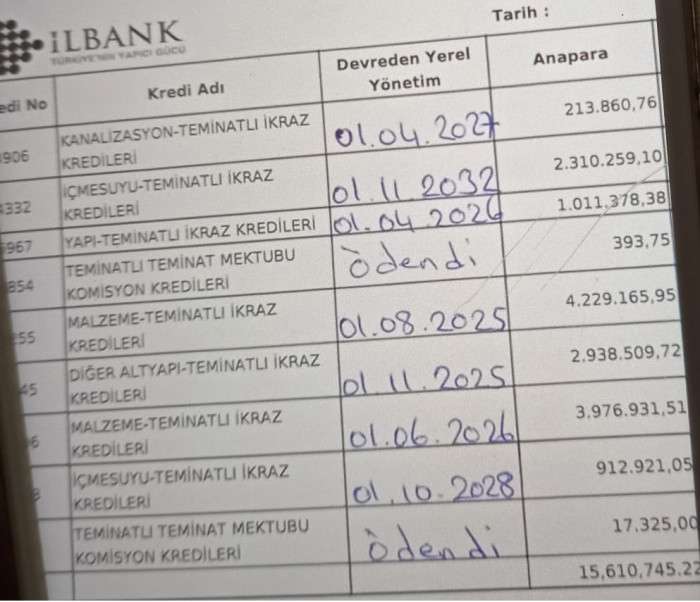 Tarih :
İLBANK
TÜRKİYE'NİN YAPICI GÜCÜ
edi No Kredi Adı Devreden Yerel Yönetim Anapara
906 KANALİZASYON-TEMİNATLI İKRAZ KREDİLERİ 01.04.2027 213.860,76
332 İÇMESUYU-TEMİNATLI İKRAZ KREDİLERİ 01.11.2032 2.310.259,10
967 YAPI-TEMİNATLI İKRAZ KREDİLERİ 01.04.2026 1.011,378,38
854 TEMİNATLI TEMİNAT MEKTUBU KOMİSYON KREDİLERİ Ödendi 393,75
55 MALZEME-TEMİNATLI İKRAZ KREDİLERİ 01.08.2025 4.229.165,95
45 DİĞER ALTYAPI-TEMİNATLI İKRAZ KREDİLERİ 01.11.2025 2.938.509,72
6 MALZEME-TEMİNATLI İKRAZ KREDİLERİ 01.06.2026 3.976.931,51
İÇMESUYU-TEMİNATLI İKRAZ KREDİLERİ 01.10.2028 912.921,05
TEMİNATLI TEMİNAT MEKTUBU KOMİSYON KREDİLERİ Ödendi 17.325,00
15,610,745.22